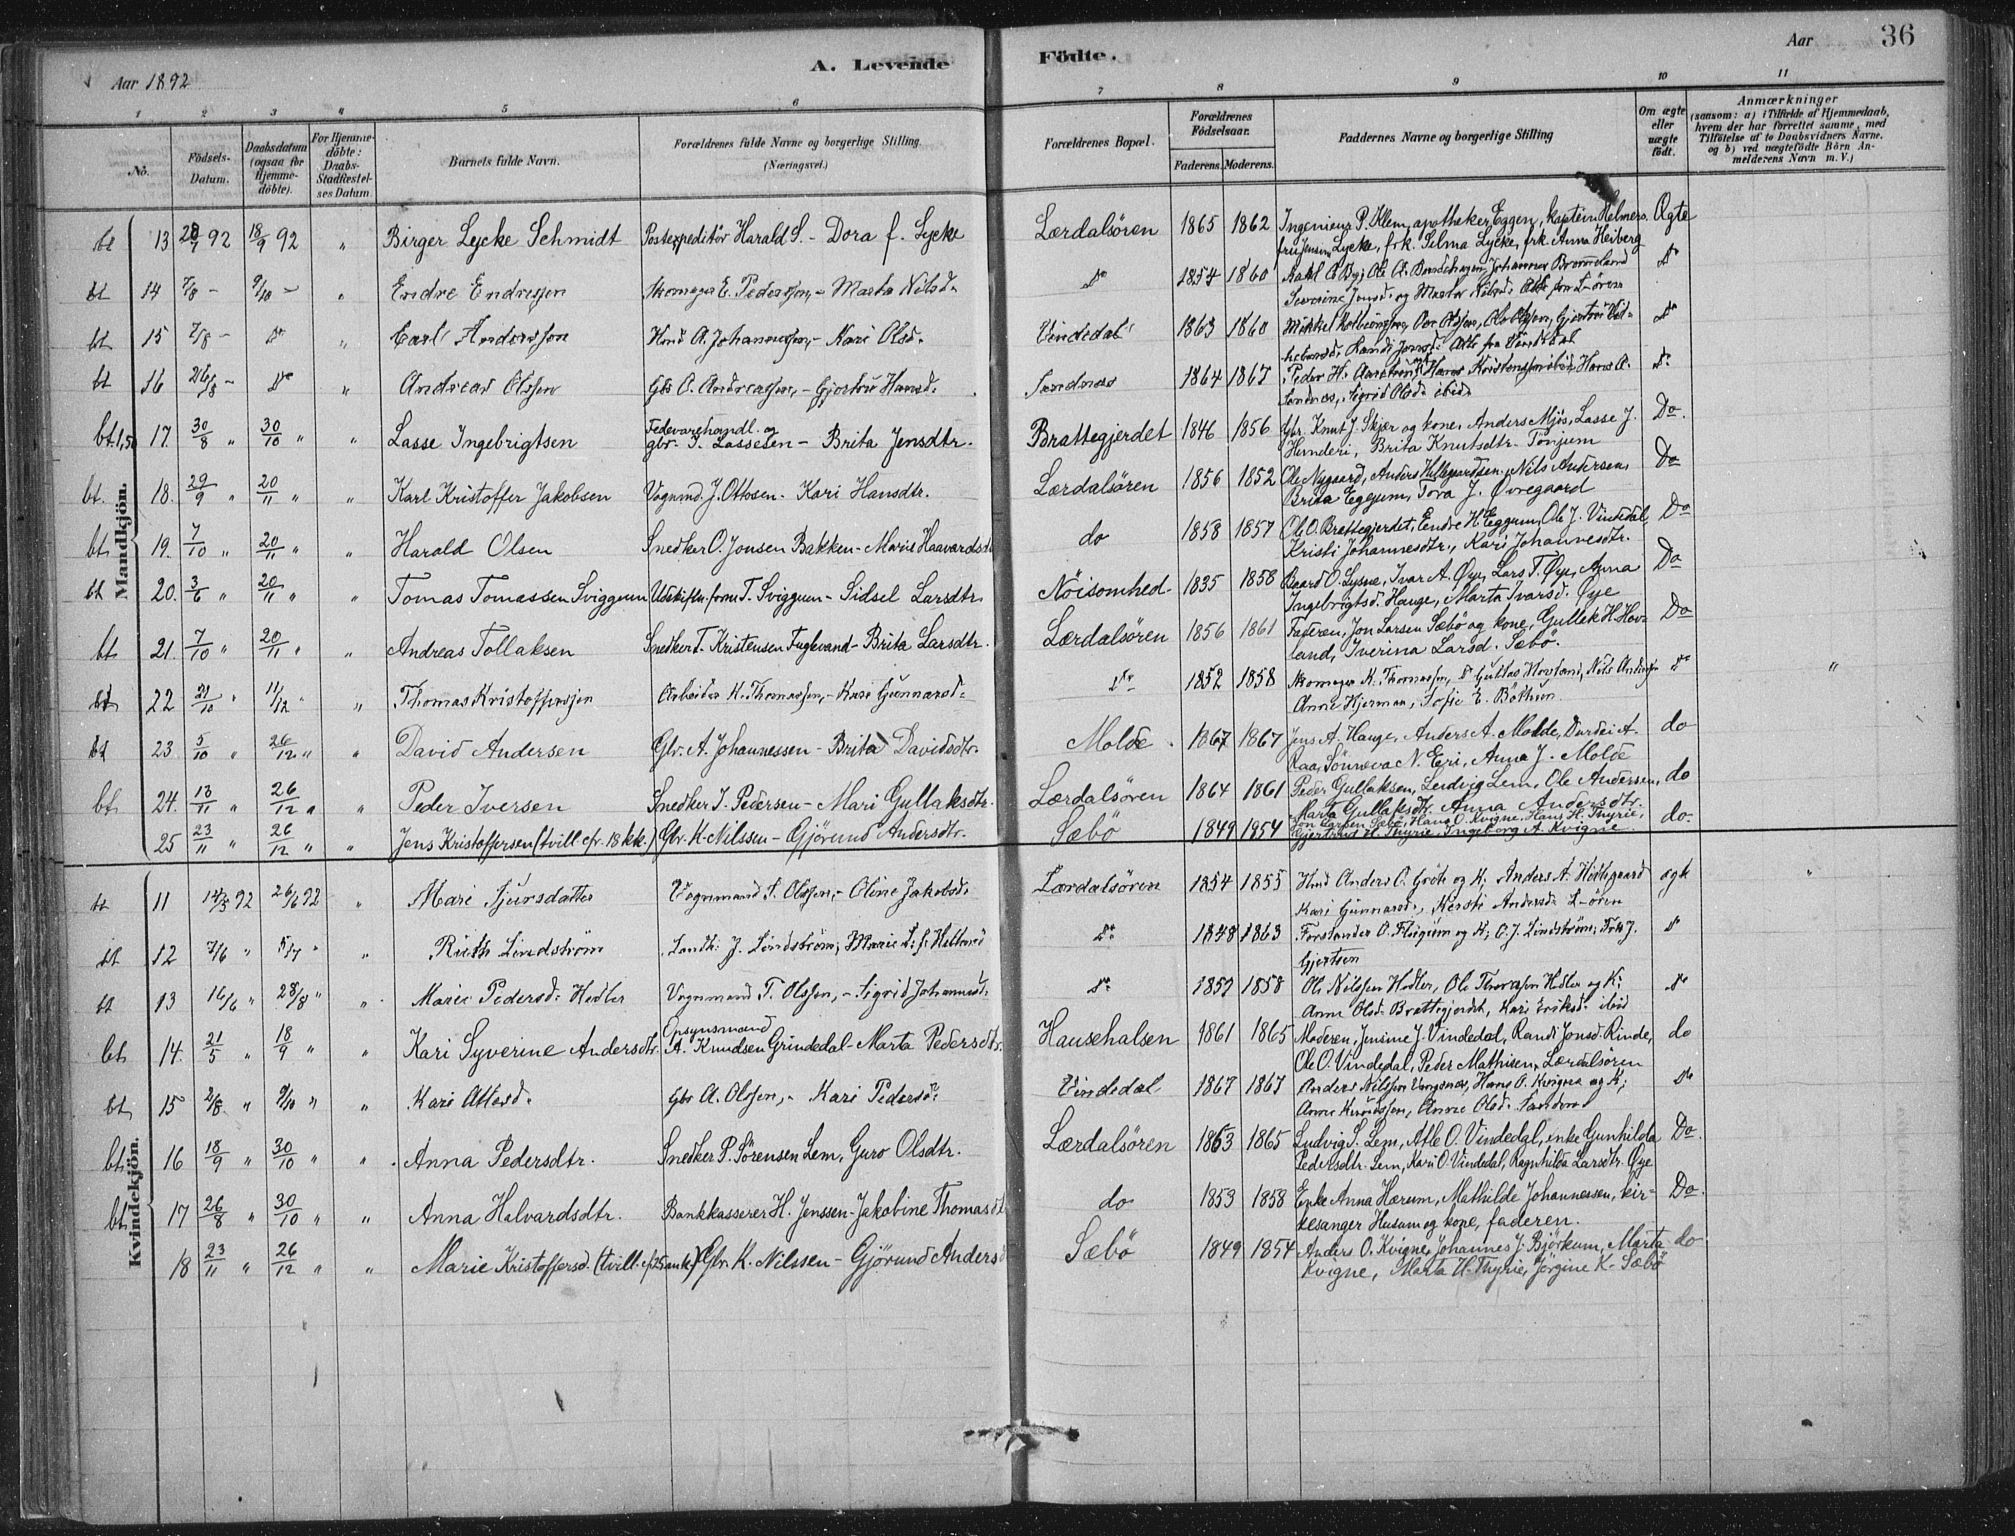 Aar 1892
A. Levende
Födte.
Aar
36
1 2 3 4 5 6 7 8 9 10 11
No.
Födsels-Datum.
Daabsdatum (ogsaa for Hjemmedöbte).
For Hjemmedöbte: Daabs-Stadfæstelses Datum
Barnets fulde Navn.
Forældrenes fulde Navne og borgerlige Stilling (Næringsvei.)
Forældrenes Bopæl.
Forældrenes Födselsaar.
Faderens. Moderens.
Faddernes Navne og borgerlige Stilling
Om ægte eller uægte födt.
Anmærkninger
(saasom: a) i Tilfælde af Hjemmedaab, hvem der har forrettet samme, med Tilföielse af to Daabsvidners Navne, og b) ved uægtefödte Börn Anmelderens Navn m. V.)
Mandkjön.
bt 13 28/7 92 18/9 92 " Birger Lycke Schmidt Postexpeditör Harald S. - Dora f. Lycke Lærdalsören 1865 1862 Ingenieur P. Klem, apotheker Eggen, kaptein Helmers Ægte
fru Jensen Lycke, frk. Selma Lycke, frk. Anna Heiberg
bt 14 7/8 - 9/10 - " Endre Endressen Skomager E. Pederssøn, - Marta Nilsd. do 1854 1860 Johannes Bromeland do
Severine Jensd. og Marta Nilsd. Alle fra L-ören
bt 15 7/8 - do " Carl Anderssøn Hmd A. Johannessøn, - Kari Olsd. Vindedal 1863 1860 do
Randi Jonsd. Alle fra Vindedal
bt 16 26/8 - do " Andreas Olssøn Gbr O. Andreassøn, - Gjertru Hansd. Sandnes 1864 1867 Peder H. Hans A. do
Sandnes, Sigrid Olsd. ibid.
bt 1,50 17. 30/8 " 30/10 " " Lasse Ingebrigtsen Fedevarehandl. og
gbr. I. Lassesen - Brita Jensdtr. Brattegjerdet 1846 1856 Gbr. Knut J. Skjær og kone, Anders Mjös, Lasse J. Do.
Hunderi, Brita Knutsdtr. Tönjum
bt. 18. 29/9 " 20/11 " " Karl Kristoffer Jakobsen Vognmd. J. Ottosen - Kari Hansdtr. Lærdalsören 1856 1852 Ole Nygaard, Anders Hillegaardsen, Nils Andersen, Do
Brita Eggjum, Tora J. Øvregaard
bt. 19. 7/10 " 20/11 " " Harald Olsen Snedker O. Jonsen Bakken - Marie Haavardsd. do 1858 1857 Ole O. Brattegjerdet, Endre H. Eggum, Ole J. Vindedal, Do
Kristi Johannesdtr., Kari Johannesdtr.
bt 20. 3/6 " 20/11 " " Tomas Tomassen Sviggum Udskiftn.form. T. Sviggum - Sidsel Larsdtr. Nöisomhed 1835 1858 Baard O. Lysne, Ivar A. Øye, Lars T. Øye, Anna Do
Ingebrigtsd. Hauge, Marta Ivarsd. Øye
bt 21. 7/10 " 20/11 " " Andreas Tollaksen Snedker T. Kristensen Fuglevand - Brita Larsdtr. Lærdalsören 1856 1861 Faderen, Jon Larsen Sæbö og kone, Gullek H. Hov- Do
land, Iverina Larsd. Sæbö.
bt 22 21/10 " 11/12 " " Thomas Kristofferssøn Arbeider K. Thomassøn, - Kari Gunnarsd. do 1852 1858 Skomager K. Thomassøn, Nils Anderssøn do "
Anne Hjerman, Sofie E. Böthun
bt 23. 5/10 " 26/12 " " David Andersen Gbr. A. Johannessen - Brita Davidsdtr. Molde 1867 1867 Jens A. Hauge, Anders A. Molde, Durdei A. do
Raa, Sönneva N. Eri, Anna J. Molde
bt 24. 13/11 " 26/12 " " Peder Iversen Snedker I. Pedersen - Mari Gullaksdtr. Lærdalsören 1864 1861 Peder Gullaksen, Ludvig Lem, Ole Andersen, do
Marta Gullaksdtr. Anna Andersdtr.
25 23/11 " 26/12 " " Jens Kristoffersen (tvill. cfr. 18 kk.) Gbr. K. Nilssen - Gjörund Andersdtr. Sæbö 1849 1954 Jon Larsen Sæbö, Hans O. Kvigne, Hans H. Thyrie, do
Gjertrud H. Thyrie, Ingeborg A. Kvigne
Kvindekjön.
bt 11 14/5 92 26/6 92 " Mari Sjursdatter Vognmand S. Olssøn, - Oline Jakobsd. Lærdalsören 1854 1855 Hmd Anders O. Gröte og K; Anders A. ægte "
Kari Gunnarsd., Kersti Andersd. L-ören
bt 12 7/6 " 17 " " Ruth Lindström Landh. J. Lindström, Marie L. f. do 1848 1863 Forstander O. Flugum og K; O. J. Lindström; Frk J. do
Gjertsen
bt 13 16/6 " 28/8 " " Marie Pedersd. Hedler Vognmand T. Olssøn, - Sigrid Johannesd. do 1857 1858 Ole Nilssøn Hedler, Ole Thomassøn Hedler og K; do
Anne Olsd. Brattegjerdet, Kari Eriksd. ibid
bt. 14. 21/5 " 18/9 " " Kari Syverine Andersdtr. Opsynsmand
A. Knudsen Grindedal - Marta Pedersdtr. Hausehalsen 1861 1865 Moderen, Jensine J. Vindedal, Randi Jonsd. Rinde, do
Ole O. Vindedal, Peder Mathisen, Lærdalsören
bt 15 2/8 " 9/10 " " Kari Attersd. Gbr A. Olssøn, - Kari Pedersd. Vindedal 1867 1867 Anders Nilssøn Vangsnes, Hans O. Kvigne og K; do
Anne Knudssøn, Anne Olsd.
bt. 16 18/9 " 30/10 " " Anna Pedersdtr. Snedker P. Sörensen Lem, Guro Olsdtr. Lærdalsören 1863 1865 Ludvig S. Lem, Atle O. Vindedal, enke Gunhilda Do.
Pedersdtr. Lem, Kari O. Vindedal, Ragnhilda Larsdtr. Øye
bt. 17 26/8 " 30/10 " " Anna Halvardsdtr. Bankkasserer H. Jenssen - Jakobine Thomasdt. do 1853 1858 Enke Anna Hærum, Mathilde Johannessen, kir- Do.
kesanger Husum og kone, faderen.
18 23/11 " 26/12 " " Marie Kristoffersd. (tvill. cfr. 25 mk.) Gbr. K. Nilssen - Gjörund Andersd. Sæbö 1849 1854 Anders O. Kvigne, Johannes J. Björkum, Marta do
Kvigne, Marta H. Thyrie, Jörgine K. Sæbö